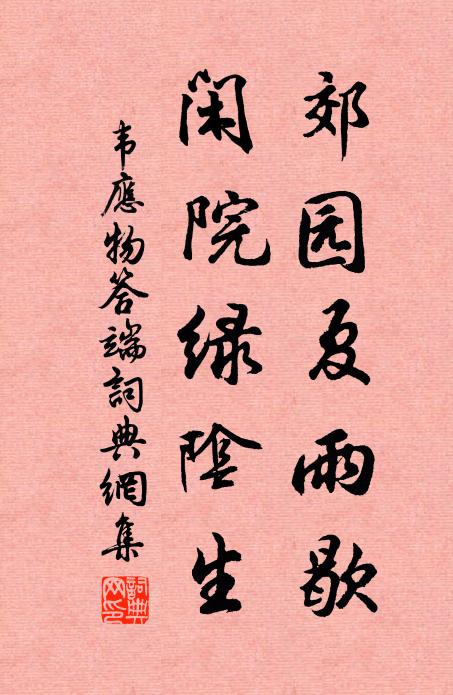 郊园夏雨歇
闲院绿陰生
韦應物答端詞典網集
詞典网印